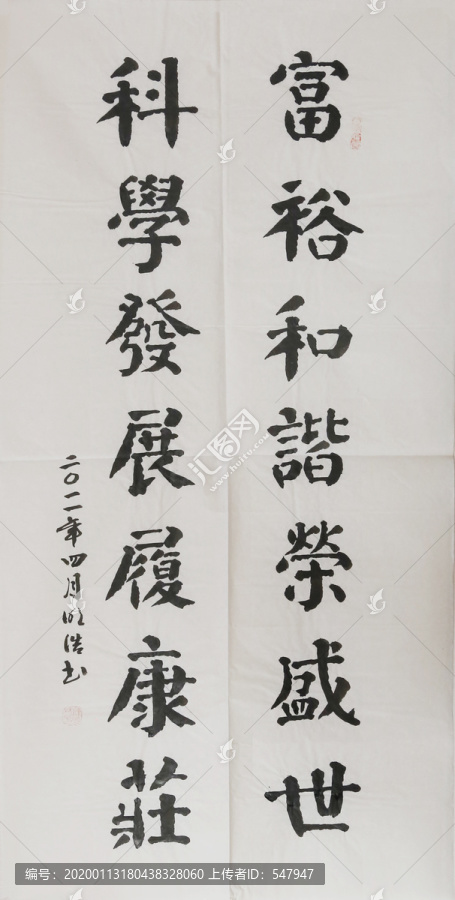 富裕和諧榮盛世
科學發展履康莊
二〇一一年四月明浩书
汇图网
www.huitu.com
编号：20200113180438328060 上传者ID：547947